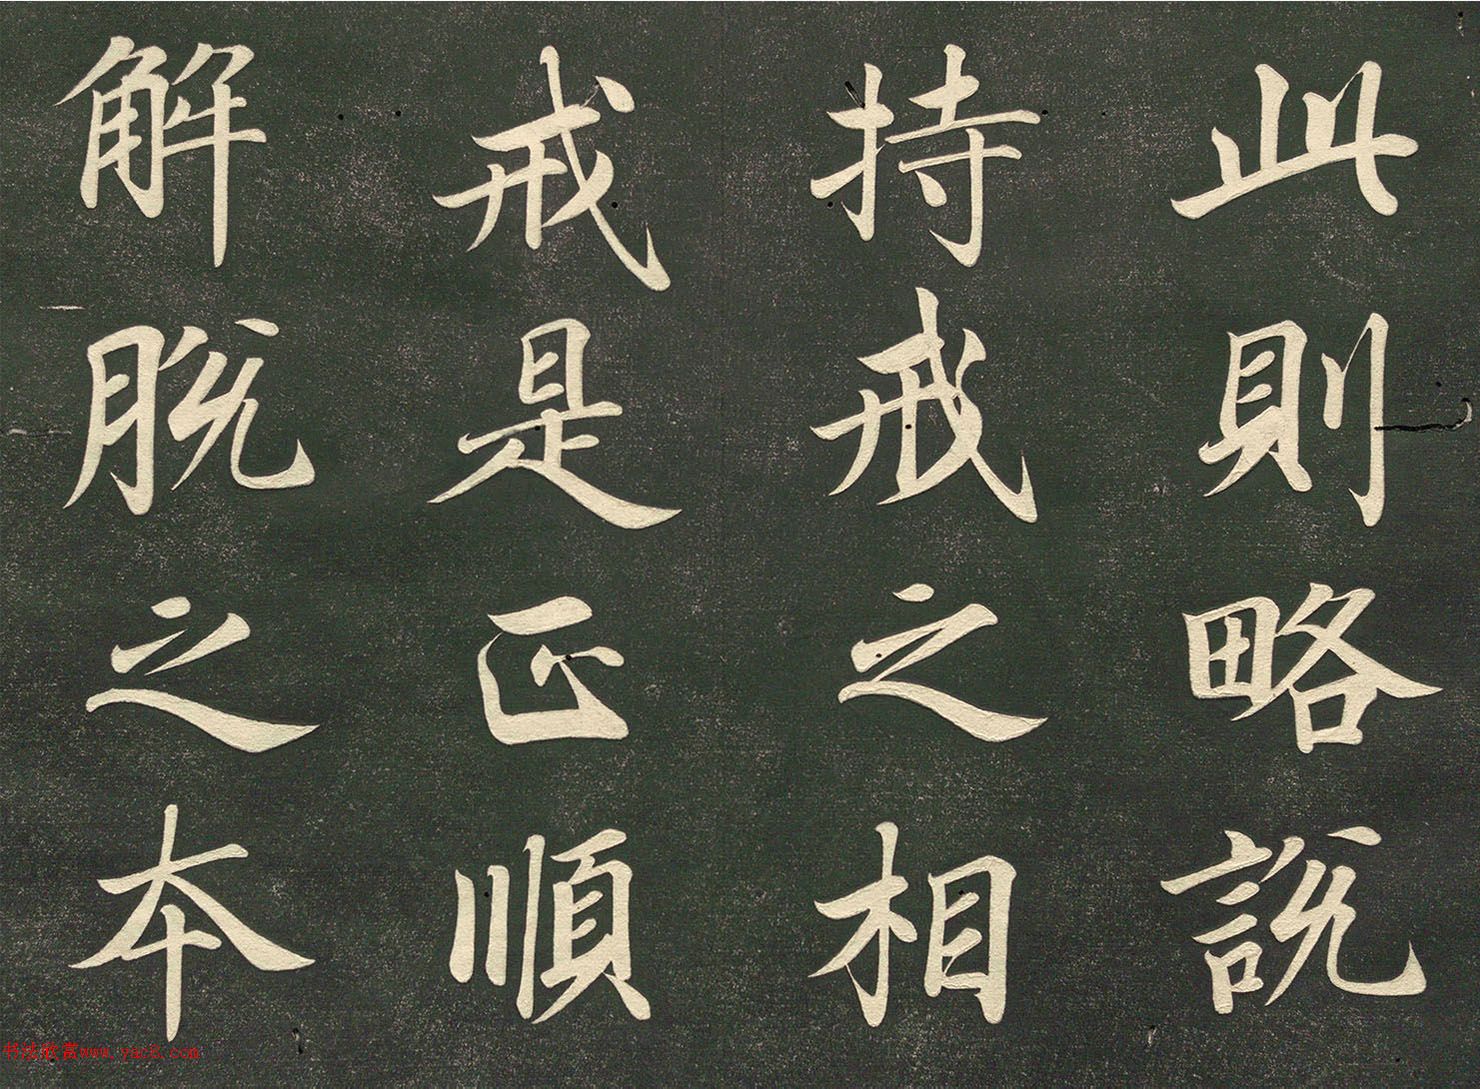 此則略說
持戒之相
戒是正順
解脫之本
书法欣赏www.yac8.com